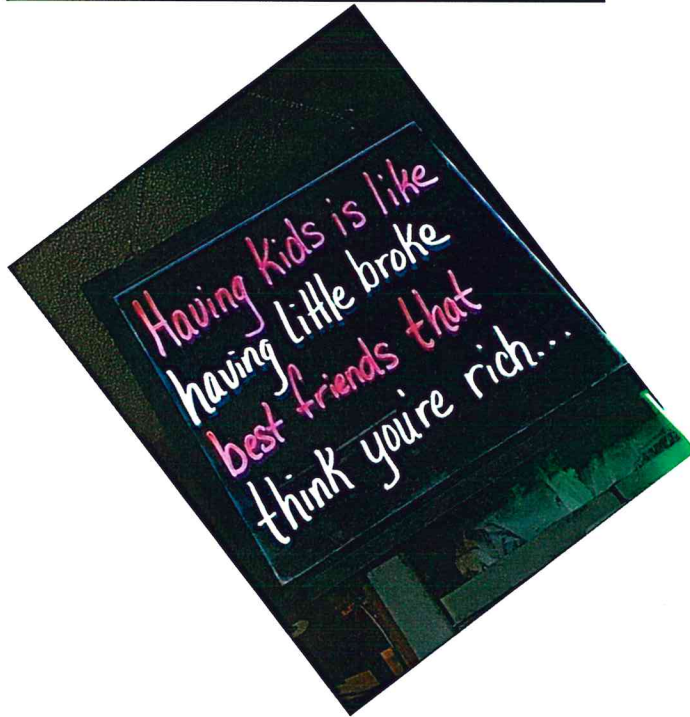 Having Kids is like
having little broke
best friends that
think you're rich...